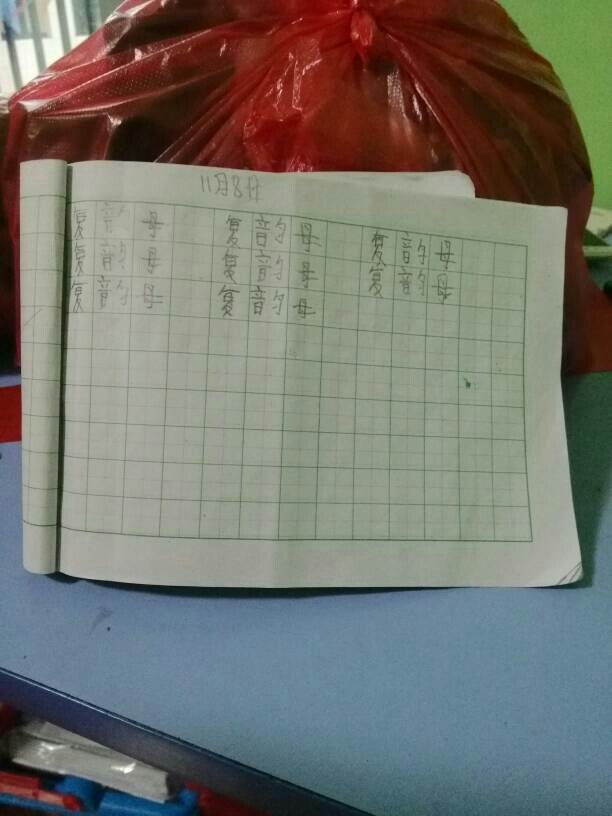 11月8日
复韵母 复韵母 复韵母
复韵母 复韵母 复韵母
复韵母 复韵母